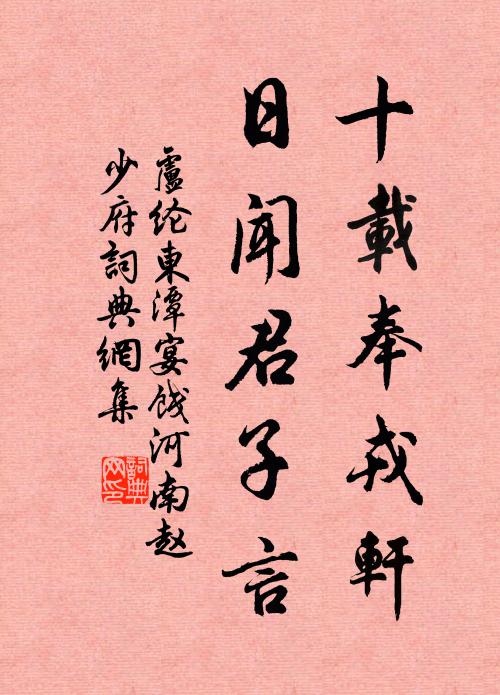 十載奉戎軒
日聞君子言
盧纶東潭宴餞河南赵
少府詞典網集
詞典
网印